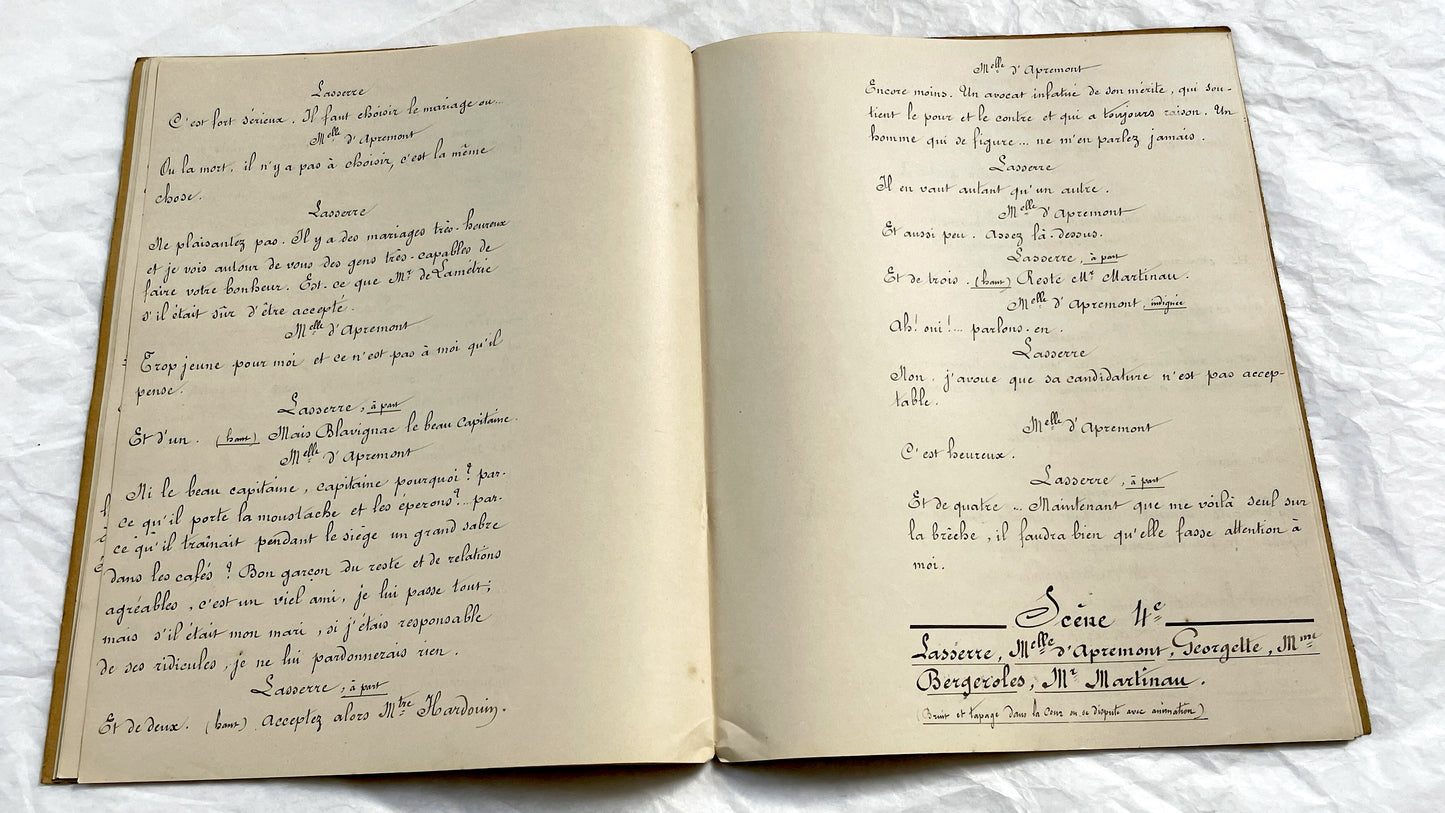 Lasserre
C'est fort sérieux. Il faut choisir le mariage ou...
Melle d'Apremont
Ou la mort, il n'y a pas à choisir, c'est la même
chose.
Lasserre
Ne plaisantez pas. Il y a des mariages très-heureux
et je vois autour de vous des gens très-capables de
faire votre bonheur. Est-ce que Mr de Lamétrie
s'il était sûr d'être accepté.
Melle d'Apremont
Trop jeune pour moi et ce n'est pas à moi qu'il
pense.
Lasserre, à part
Et d'un. (haut) Mais Blavignac le beau capitaine.
Melle d'Apremont
Ni le beau capitaine, capitaine pourquoi? par-
ce qu'il porte la moustache et les éperons?... par-
ce qu'il traînait pendant le siège un grand sabre
dans les cafés? Bon garçon du reste et de relations
agréables, c'est un viel ami, je lui passe tout;
mais s'il était mon mari, si j'étais responsable
de ses ridicules, je ne lui pardonnerais rien.
Lasserre, à part
Et de deux. (haut) Acceptez alors Mtre Hardouin.
Melle d'Apremont
Encore moins. Un avocat infatué de son mérite, qui sou-
tient le pour et le contre et qui a toujours raison. Un
homme qui se figure... ne m'en parlez jamais.
Lasserre
Il en vaut autant qu'un autre.
Melle d'Apremont
Et aussi peu. Assez là-dessus.
Lasserre, à part
Et de trois. (haut) Reste Mr Martinau.
Melle d'Apremont, indignée
Ah! oui!... parlons-en.
Lasserre
Non, j'avoue que sa candidature n'est pas accep-
table.
Melle d'Apremont
C'est heureux.
Lasserre, à part
Et de quatre ... Maintenant que me voilà seul sur
la brèche, il faudra bien qu'elle fasse attention à
moi.
Scène 4e
Lasserre, Melle d'Apremont, Georgette, Mme
Bergeroles, Mr Martinau.
(Bruit et tapage dans la cour on se dispute avec animation)